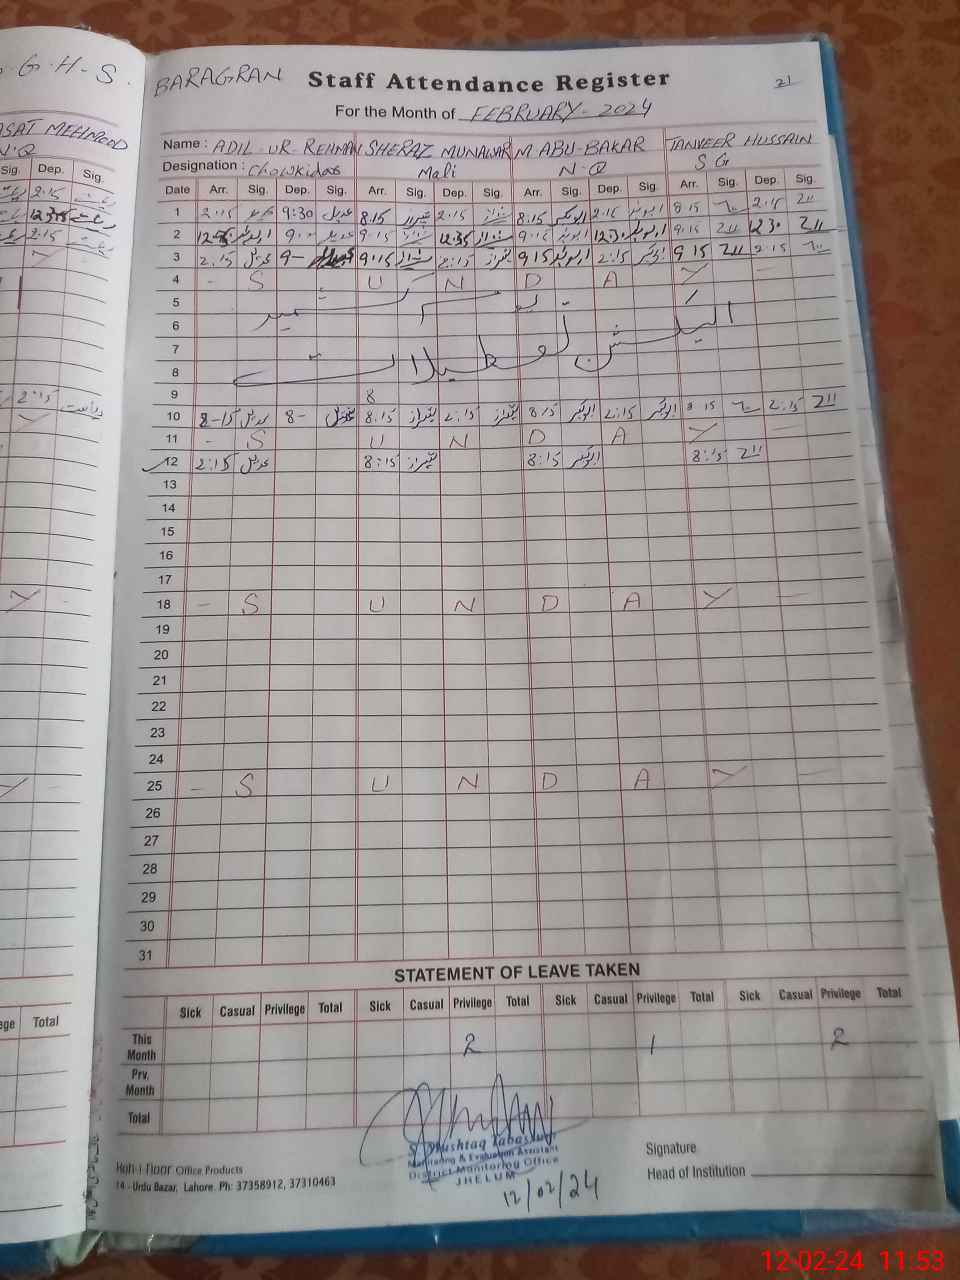 G.H.S.
BARAGRAN Staff Attendance Register 21
For the Month of FEBRUARY-2024
Name: ADIL-UR-REHMAN SHERAZ MUNAWAR M ABU-BAKAR TANVEER HUSSAIN
Designation: Chowkidar Mali N-Q S G
Date Arr. Sig. Dep. Sig. Arr. Sig. Dep. Sig. Arr. Sig. Dep. Sig. Arr. Sig. Dep. Sig.
1 2:15 9:30 عدیل 8:15 شیراز 2:15 شیراز 8:15 ابوبکر 2:15 ابوبکر 8 15 2:15
2 9:00 عدیل 9:15 شیراز 12:35 شیراز 9:15 ابوبکر 12:30 ابوبکر 9:15 12 30
3 2:15 عدیل 9- 9:15 شیراز 2:15 شیراز 9 15 ابوبکر 2:15 ابوبکر 9 15 2:15
4 - S U N D A Y -
5 یوم کشمیر
6
7 الیکشن تعطیلات
8
9 8
10 8-15 عدیل 8- عدیل 8:15 شیراز 2:15 شیراز 8:15 ابوبکر 2:15 ابوبکر 8 15 2:15
11 - S U N D A Y -
12 2:15 عدیل 8:15 شیراز 8:15 ابوبکر 8:15
13
14
15
16
17
18 - S U N D A Y -
19
20
21
22
23
24
25 - S U N D A Y -
26
27
28
29
30
31
STATEMENT OF LEAVE TAKEN
Sick Casual Privilege Total Sick Casual Privilege Total Sick Casual Privilege Total Sick Casual Privilege Total
This Month 2 1 2
Prv. Month
Total
Mushtaq Tabassum
Monitoring & Evaluation Assistant
District Monitoring Office
JHELUM
12/02/24
Office Products
14 - Urdu Bazar, Lahore. Ph: 37358912, 37310463
Signature
Head of Institution
MEHMOOD
N.Q
Sig. Dep. Sig.
2:15
12:35
2:15
Y -
2:15
Y
Y -
Y
Total
12-02-24 11:53